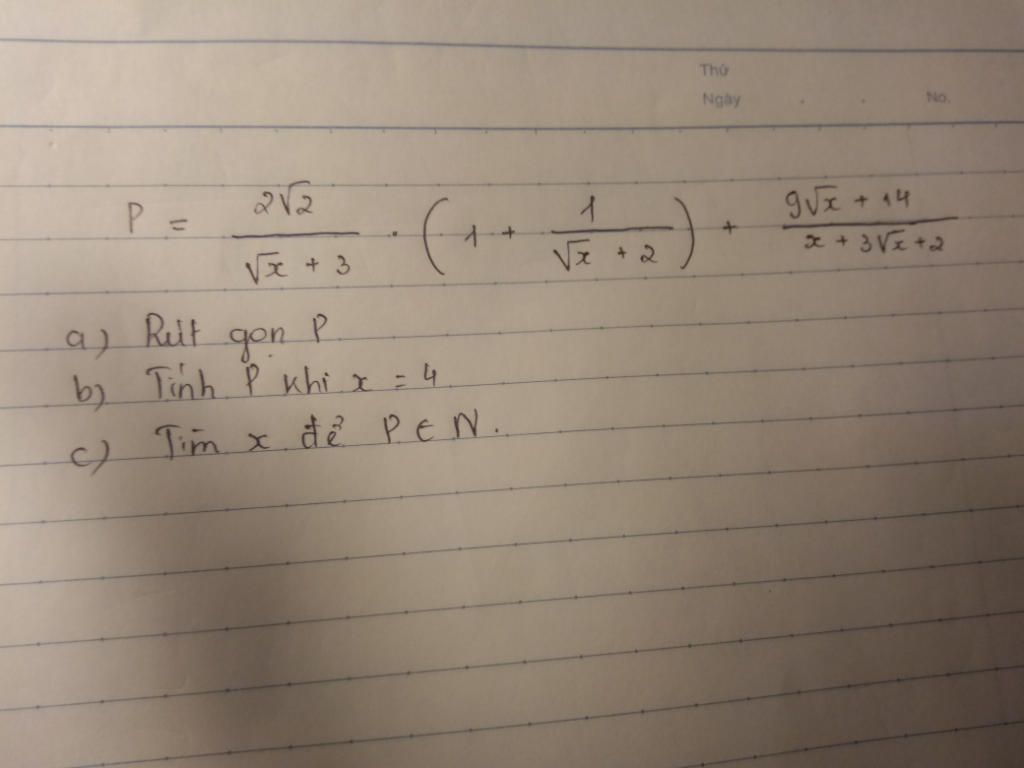 Thứ
Ngày . . No.
P = \frac{2\sqrt{2}}{\sqrt{x} + 3} . \left( 1 + \frac{1}{\sqrt{x} + 2} \right) + \frac{9\sqrt{x} + 14}{x + 3\sqrt{x} + 2}
a) Rút gọn P
b) Tính P khi x = 4
c) Tìm x để P ∈ N.